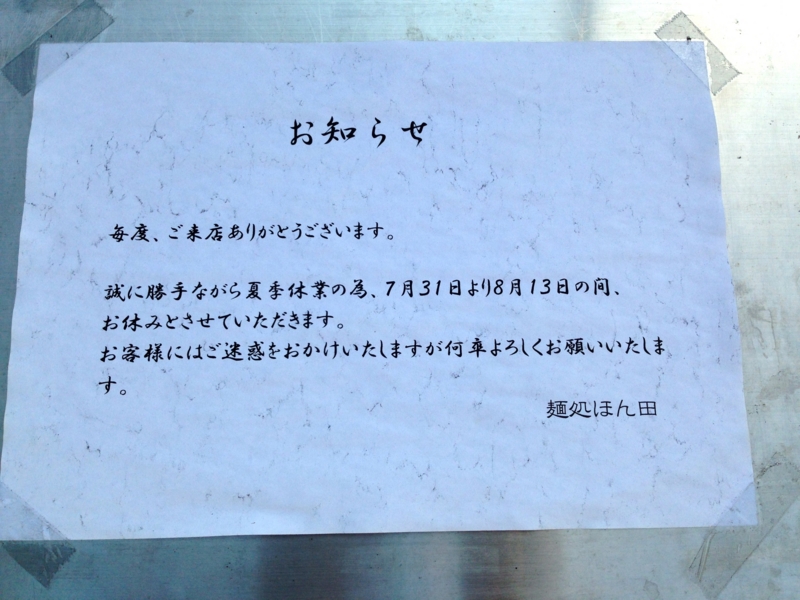 お知らせ
毎度、ご来店ありがとうございます。
誠に勝手ながら夏季休業の為、7月31日より8月13日の間、
お休みとさせていただきます。
お客様にはご迷惑をおかけいたしますが何卒よろしくお願いいたしま
す。
麺処ほん田